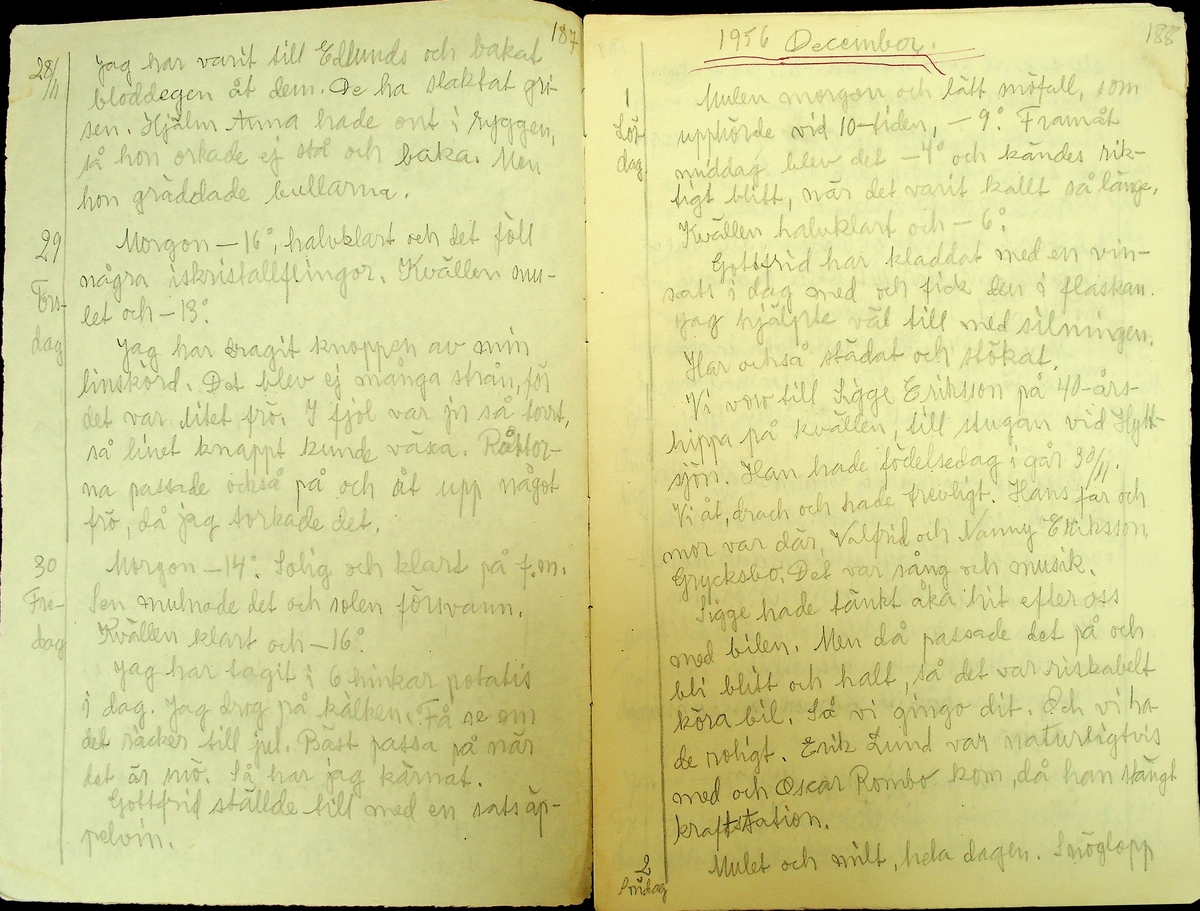 187
28/11
Jag har varit till Edlunds och bakat
bloddegen åt dem. De ha slaktat gri-
sen. Hjälm Anna hade ont i ryggen,
så hon orkade ej stå och baka. Men
hon gräddade bullarna.
29
Tors-
dag
Morgon -16°, halvklart och det föll
några iskristallflingor. Kvällen mu-
let och -13°.
Jag har dragit knoppen av min
linskörd. Det blev ej många strån, för
det var litet frö. I fjol var ju så torrt,
så linet knappt kunde växa. Råttor-
na passade också på och åt upp något
frö, då jag torkade det.
30
Fre-
dag
Morgon -14°. Solig och klart på f.m.
Sen mulnade det och solen försvann.
Kvällen klart och -16°.
Jag har tagit i 6 hinkar potatis
i dag. Jag drog på kälken. Få se om
det räcker till jul. Bäst passa på när
det är snö. Så har jag kärnat.
Gottfrid ställde till med en sats äp-
pelvin.
188
1956 December.
1
Lör-
dag
Mulen morgon och lätt snöfall, som
upphörde vid 10-tiden, -9°. Framåt
middag blev det -4° och kändes rik-
tigt blitt, när det varit kallt så länge.
Kvällen halvklart och -6°.
Gottfrid har kladdat med en vin-
sats i dag med och fick den i flaskan.
Jag hjälpte väl till med silningen.
Har också städat och stökat.
Vi voro till Sigge Eriksson på 40-års-
hippa på kvällen, till stugan vid Hytt-
sjön. Han hade födelsedag i går 30/11.
Vi åt, drack och hade trevligt. Hans far och
mor var där, Valfrid och Nanny Eriksson,
Grycksbo. Det var sång och musik.
Sigge hade tänkt åka hit efter oss
med bilen. Men då passade det på och
bli blitt och halt, så det var riskabelt
köra bil. Så vi gingo dit. Och vi ha-
de roligt. Erik Lund var naturligtvis
med och Oscar Rombo kom, då han stängt
kraftstation.
2
Söndag
Mulet och milt, hela dagen. Snöglopp